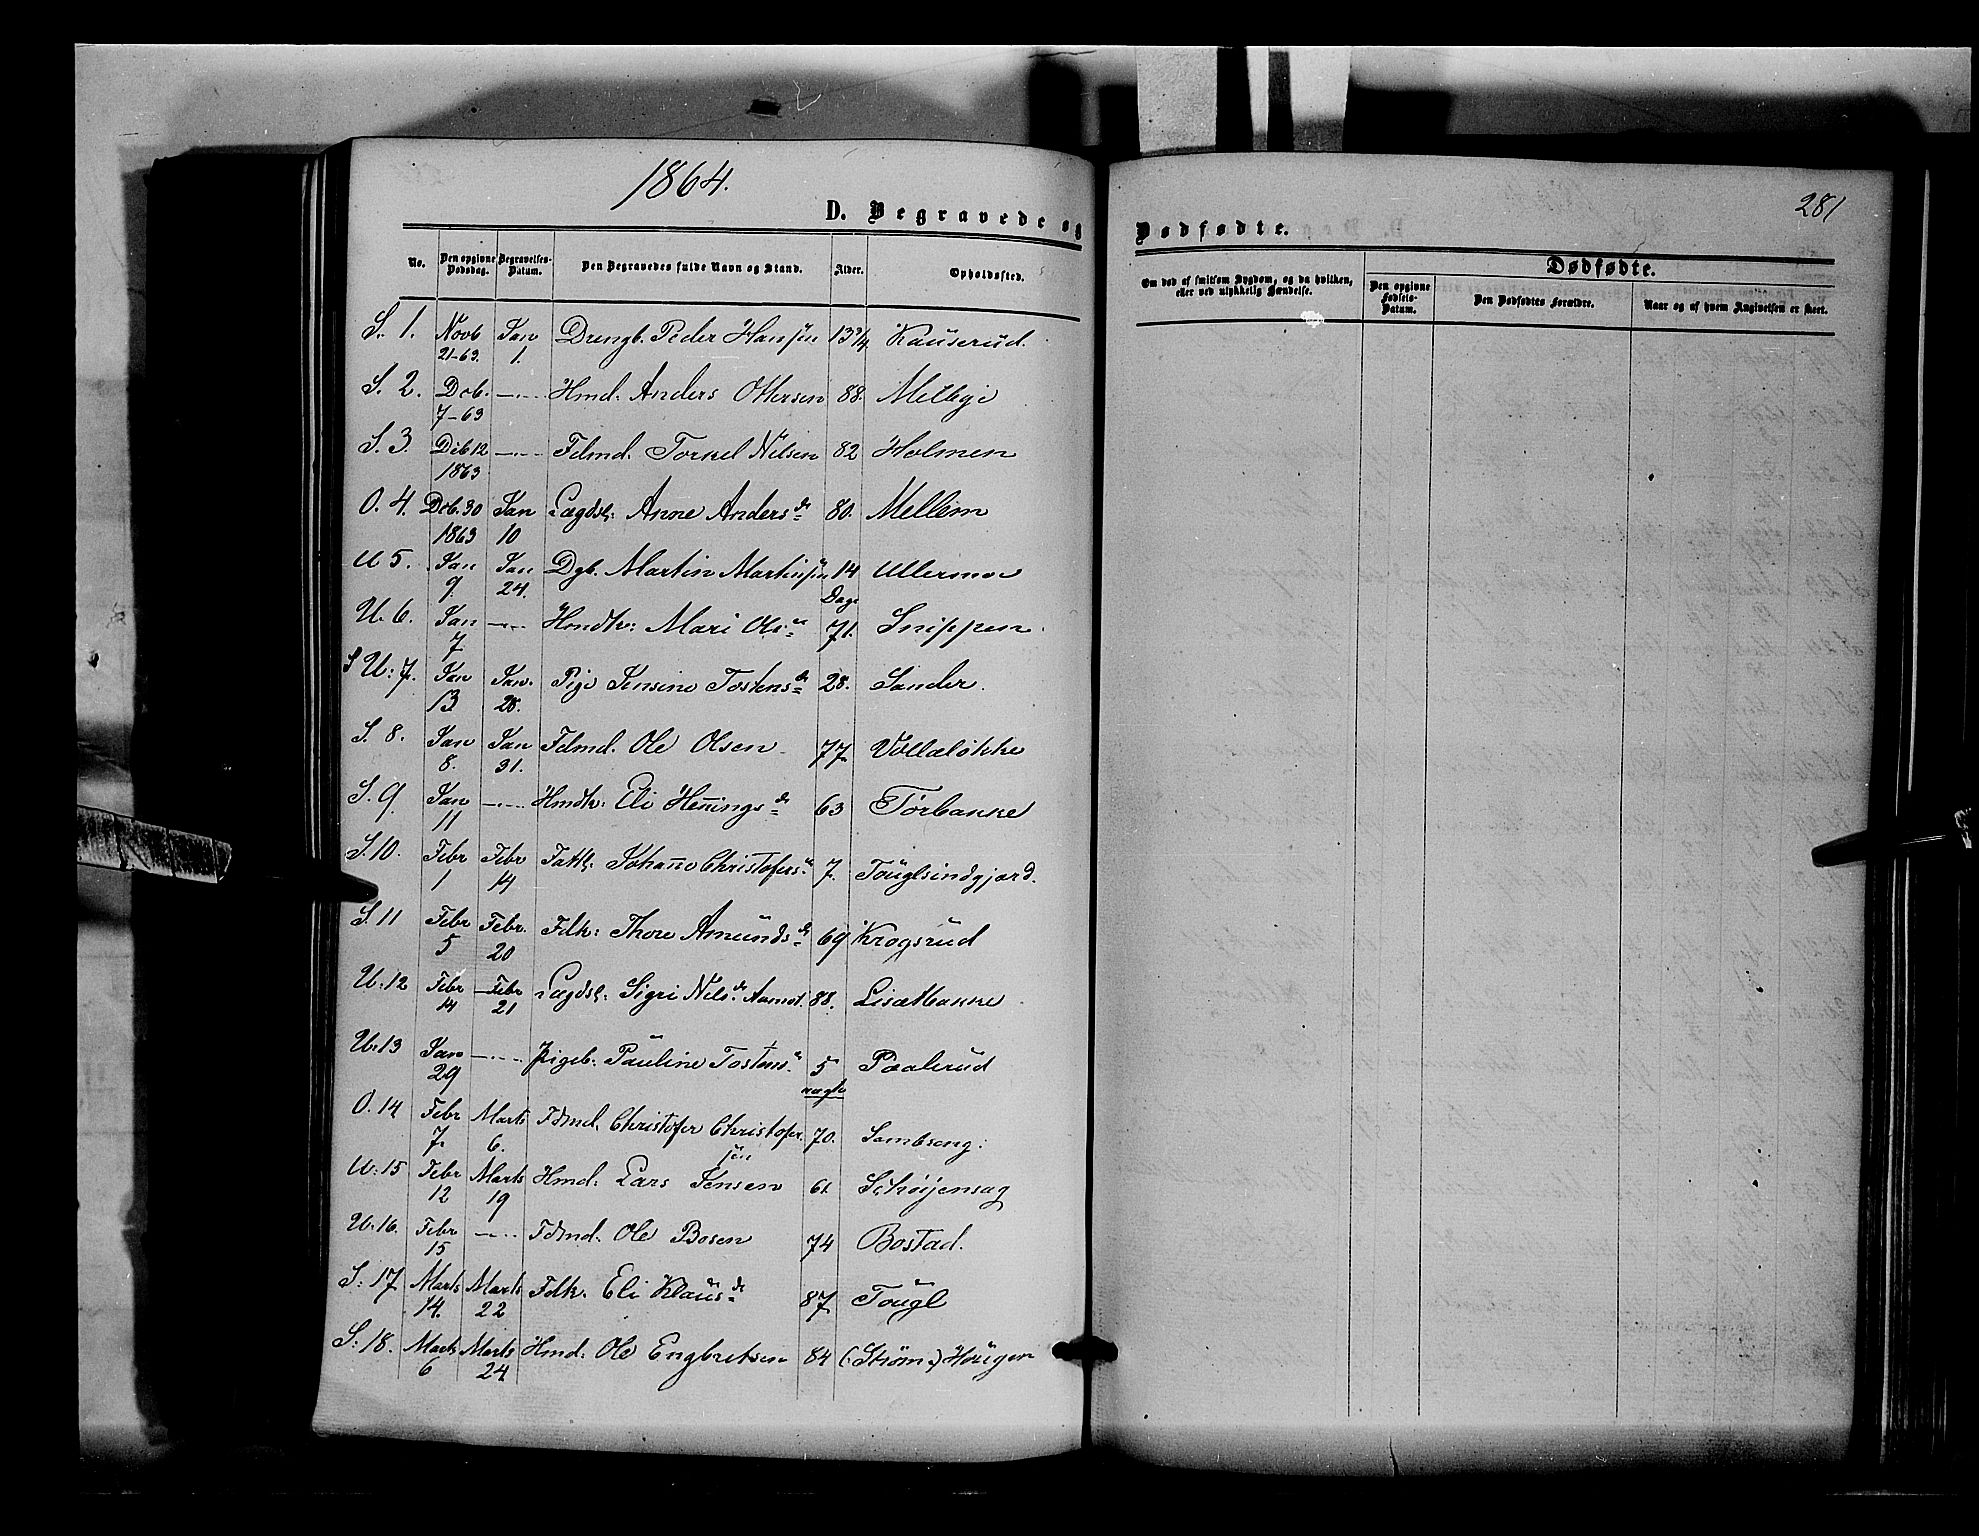 1864.
281
D. Begravede og
Dødfødte.
No.
Den opgivne Dødsdag.
Begravelses-Datum.
Den Begravedes fulde Navn og Stand.
Alder.
Opholdssted.
Om død af smitsom Sygdom, og da hvilken, eller ved ulykkelig Hændelse.
Dødfødte.
Den opgivne Fødsels-Datum.
Den Dødfødtes Forældre.
Naar og af hvem Angivelsen er skeet.
S. 1. Novb 21-63. Jan 1. Drengb. Peder Hansen 13 3/4 Kauserud.
S. 2. Dcb. 7-63 —"— Hmd. Anders Ottersen 88. Melbye
S. 3. Dcb 12 1863 —"— Fdmd. Torkel Nilsen 82 Holmen
O. 4. Dcb. 30 1863 Jan 10 Lægdsl: Anne Andersdr 80. Mellem
U 5. Jan 9. Jan 24. Dgb. Martin Martinsen 14 Dage Ullermoe
U. 6. Jan 7 —"— Hmdk: Mari Olsdr 71. Snippen
S U: 7. Jan 13 Jan. 28. Pige Jensine Tostensdr 28. Sander.
S. 8. Jan 8. Jan 31. Fdmd. Ole Olsen 77 Vollaløkke
S. 9. Jan 11 —"— Hmdk: Eli Henningsdr 63 Torbakke
S. 10. Febr 1 Febr 14 Johanne Christofers. 7. Fouglsindgjærd.
S. 11 Febr 5 Febr. 20 Fdk: Thore Amundsdr 69 Krogsrud
U. 12 Febr 14 Febr 21 Lægdsl: Sigri Nilsdr. Aamot. 88. Lisætbakke
U. 13 Jan 29 —"— Pigeb: Pauline Tostens. 5 Paalerud
O. 14 Febr 7. Marts 6. Fdmd. Christofer Christofersen 70. Sembseng.
U. 15 Febr 12 Marts 19 Hmd: Lars Jensen 61 Schøyensag
U. 16. Febr 15 —"— Fdmd. Ole Bosen 74 Bostad.
S: 17 Marts 14. Marts 22 Fdk. Eli Klausdr 87 Fougl
S: 18. Marts 6 Marts 24 Hmd: Ole Engbretsen 84 (Strøm:) Hougen